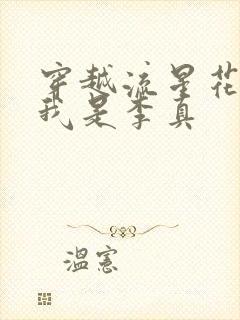 穿越流星花
我是李真
温宪